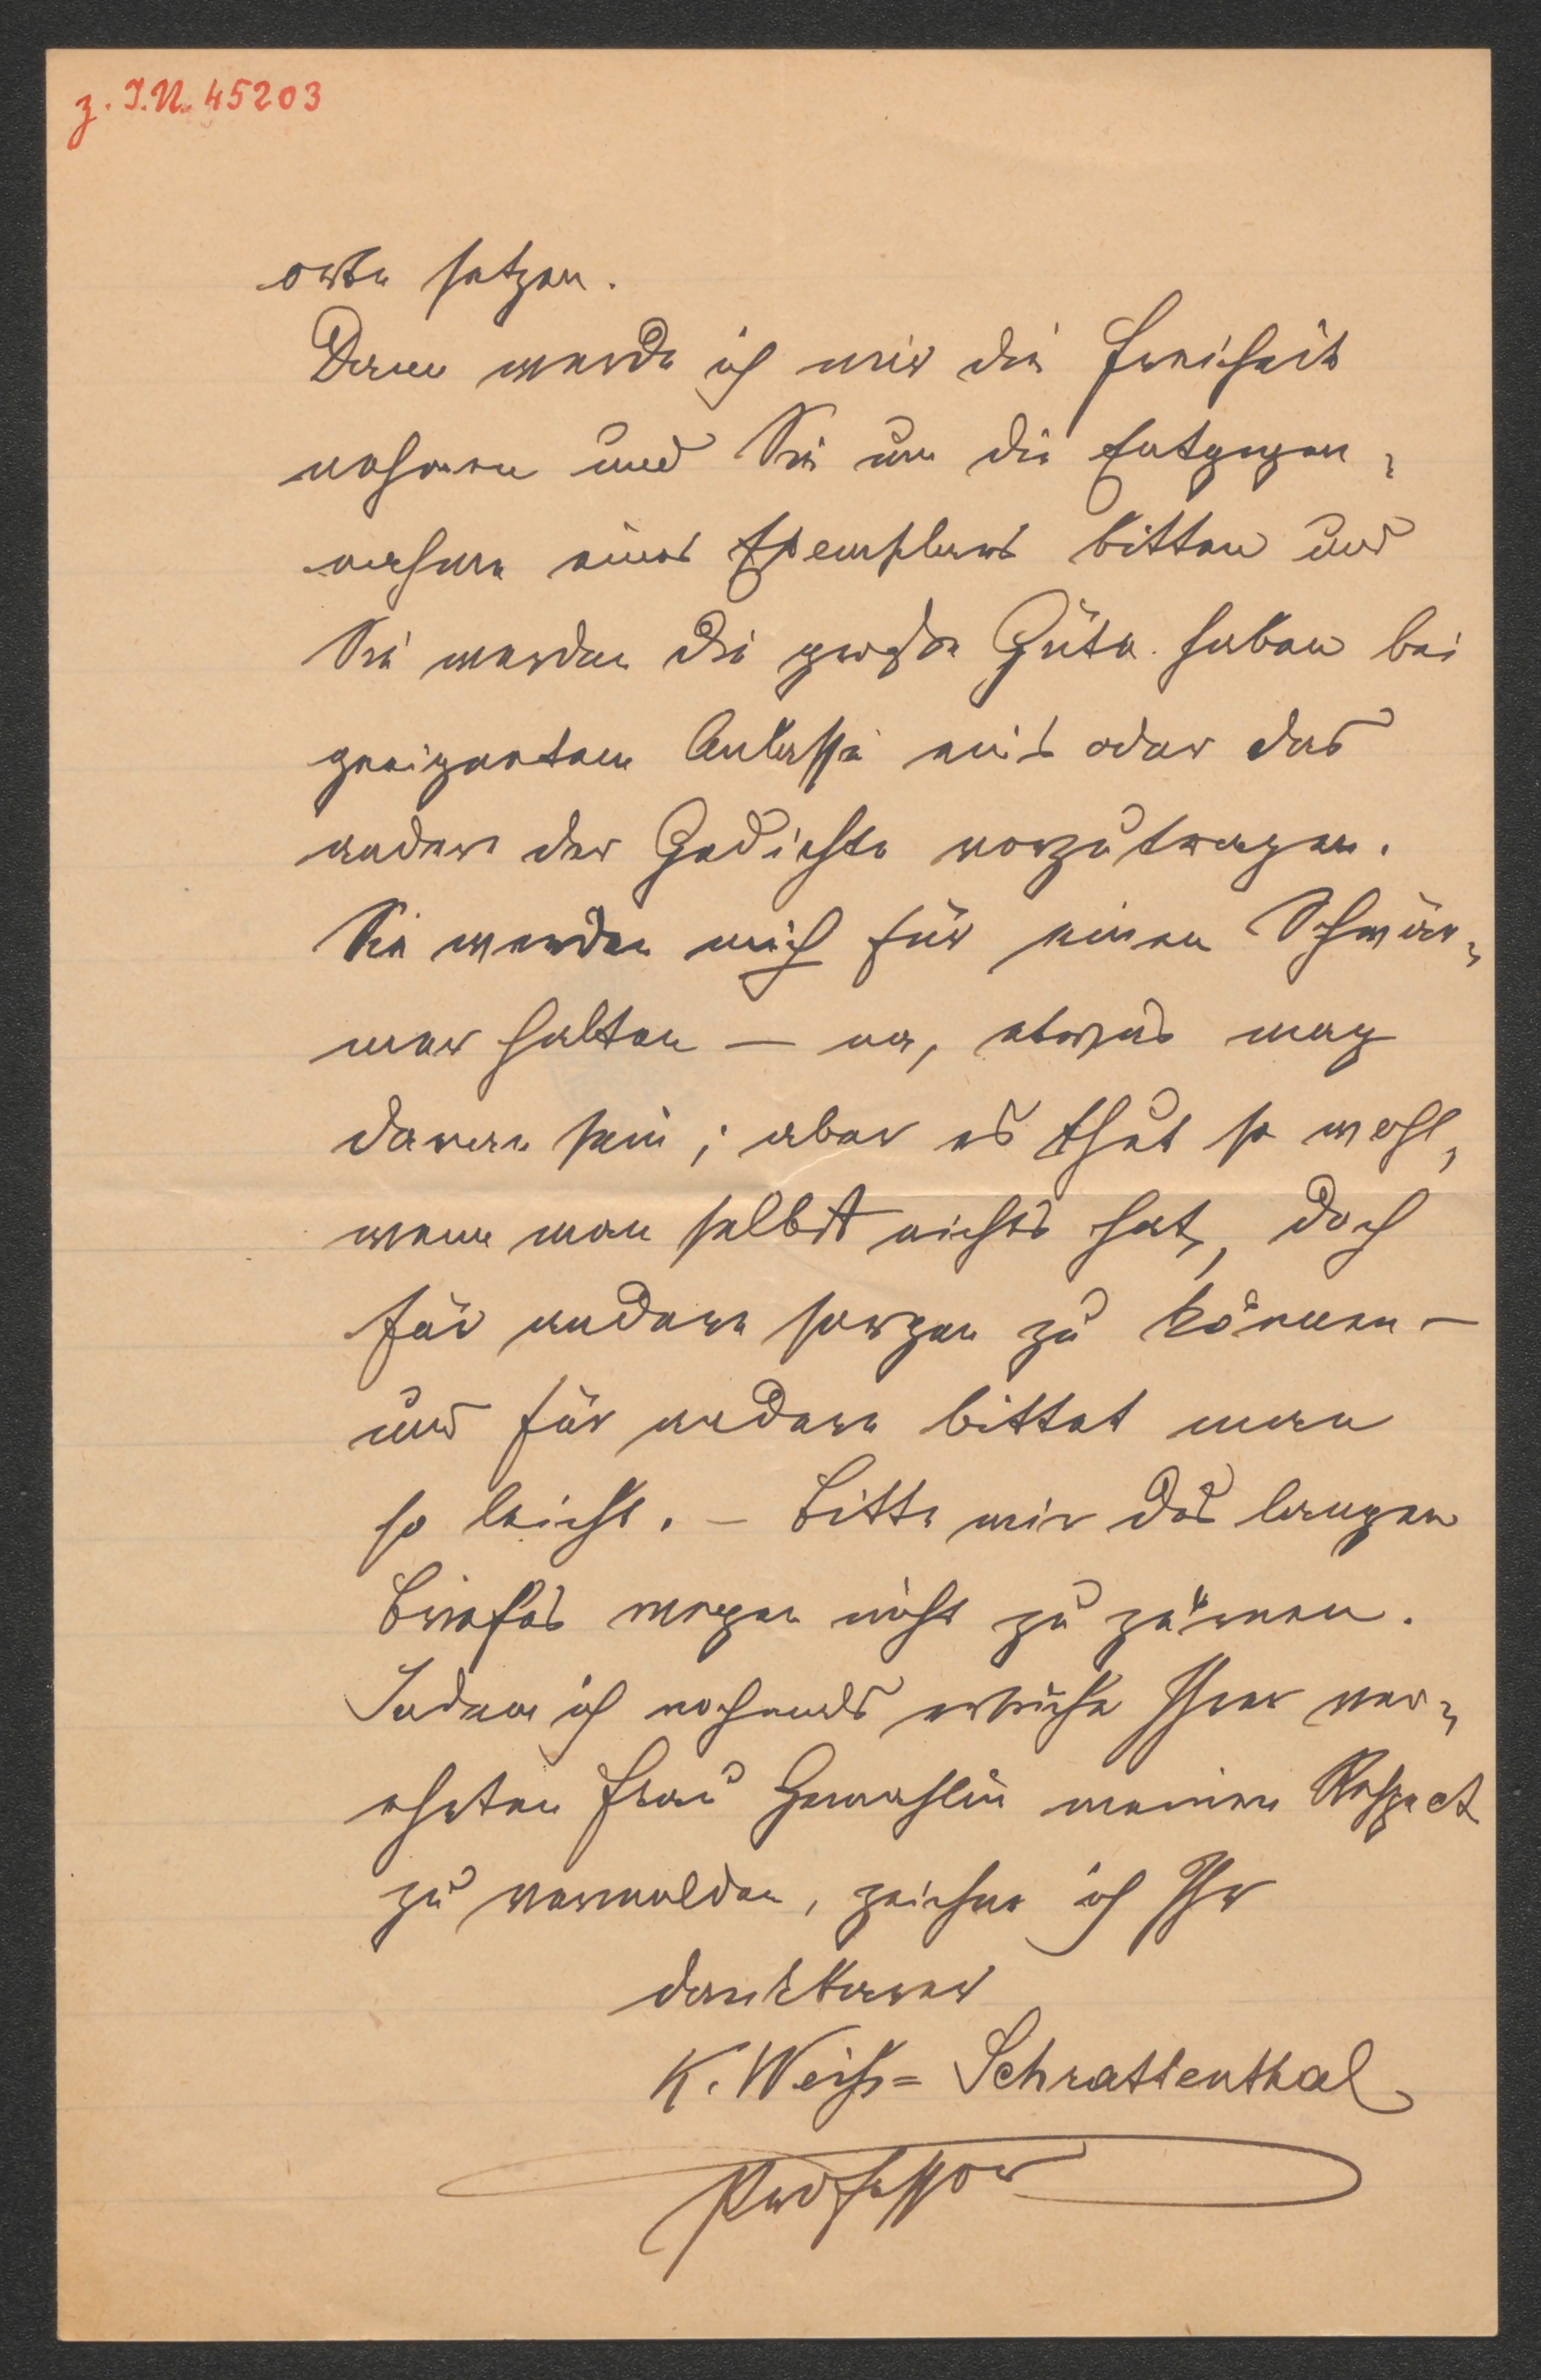 z. I.N. 45203
orte setzen.
Dann werde ich mir die Freiheit
nehmen und Sie um die Entgegen-
nahme eines Exemplars bitten und
Sie werden die große Güte haben bei
geeignetem Anlasse eins oder das
andere der Gedichte vorzutragen.
Sie werden mich für einen Schwär-
mer halten — na, etwas mag
daran sein; aber es thut so wohl,
wenn man selbst nichts hat, doch
für andere sorgen zu können —
und für andere bittet man
so leicht. — Bitte mir des langen
Briefes wegen nicht zu zürnen.
Indem ich nochmals ersuche Ihrer ver-
ehrten Frau Gemahlin meinen Respect
zu vermelden, zeichne ich Ihr
dankbarer
K. Weiß= Schrattenthal
Professor